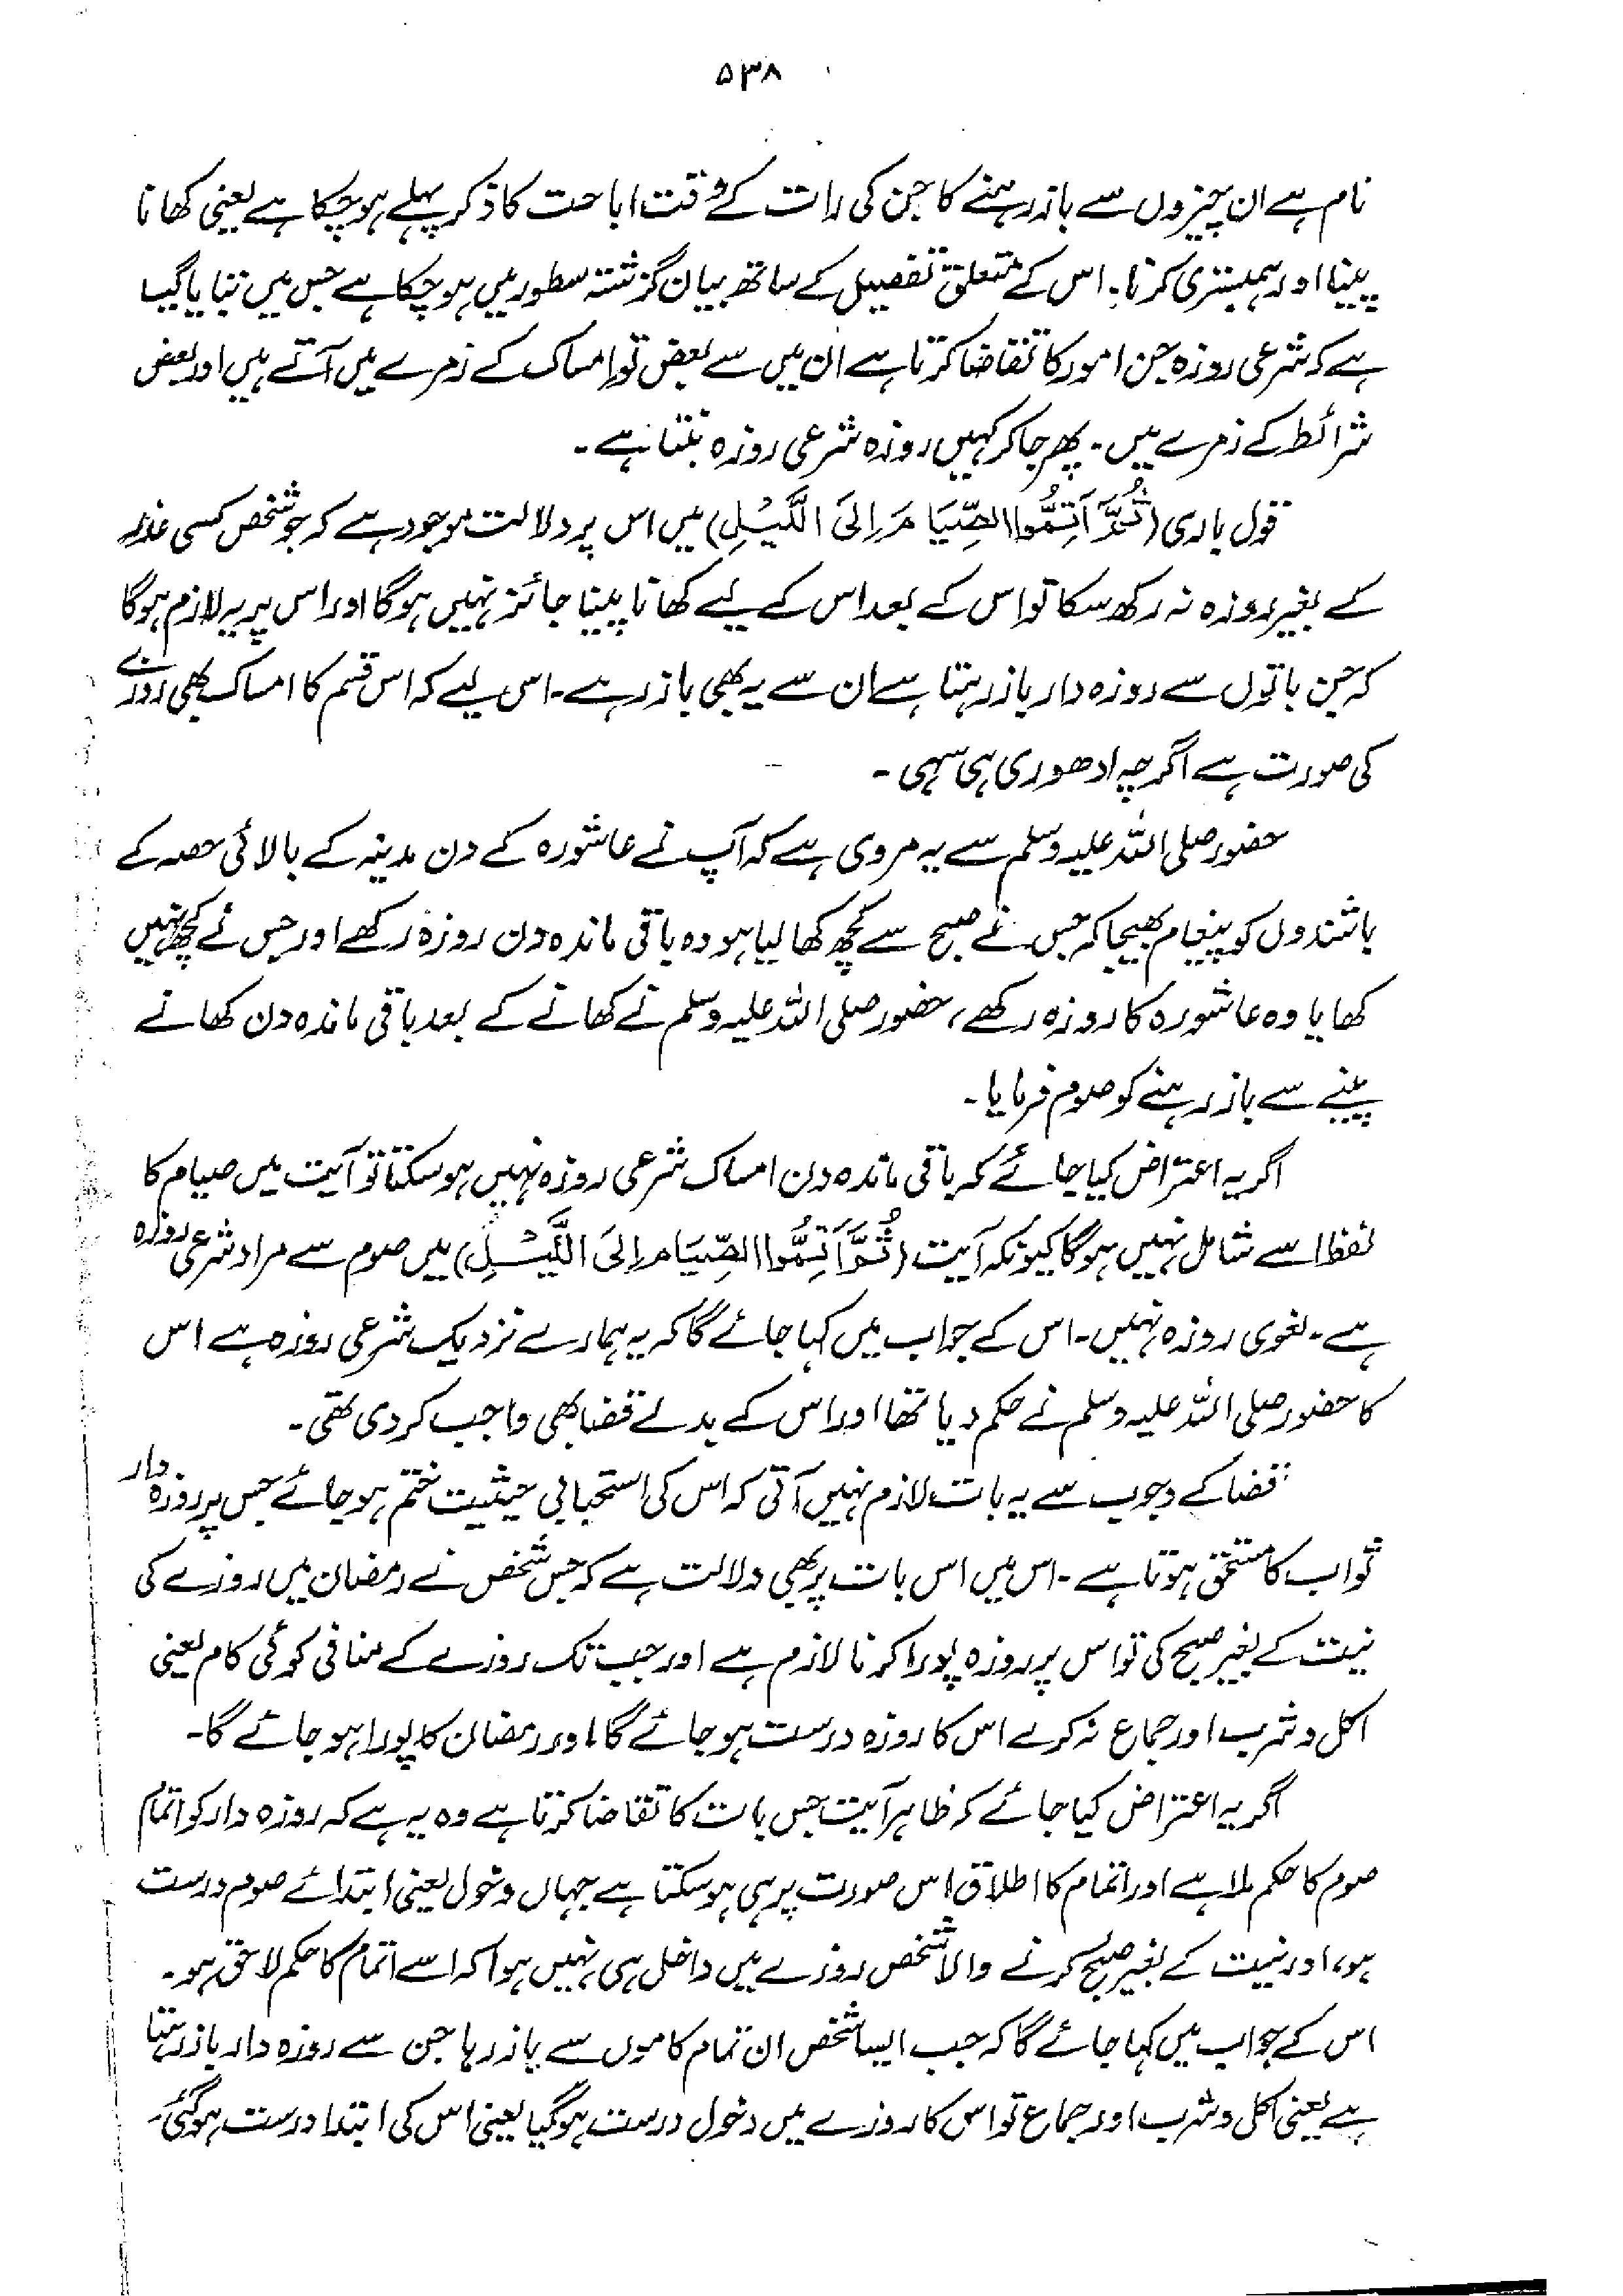 ۵۳۸
نام ہے ان چیزوں سے باز رہنے کا جن کی رات کے وقت اباحت کا ذکر پہلے ہو چکا ہے یعنی کھانا
پینا اور ہمبستری کرنا۔ اس کے متعلق تفصیل کے ساتھ بیان گزشتہ سطور میں ہو چکا ہے جس میں بتایا گیا
ہے کہ شرعی روزہ جن امور کا تقاضا کرتا ہے ان میں سے بعض تو امساک کے زمرے میں آتے ہیں اور بعض
شرائط کے زمرے میں۔ پھر جا کر کہیں روزہ شرعی روزہ بنتا ہے۔
قول باری (ثُمَّ اَتِمُّوا الصِّیَامَ اِلَی الَّیْلِ) میں اس پر دلالت موجود ہے کہ جو شخص کسی عذر
کے بغیر روزہ نہ رکھ سکا تو اس کے بعد اس کے لیے کھانا پینا جائز نہیں ہوگا اور اس پر یہ لازم ہوگا
کہ جن باتوں سے روزہ دار باز رہتا ہے ان سے یہ بھی باز رہے۔ اس لیے کہ اس قسم کا امساک بھی روزے
کی صورت ہے اگرچہ ادھوری ہی سہی۔
حضور صلی اللہ علیہ وسلم سے یہ مروی ہے کہ آپ نے عاشورہ کے دن مدینہ کے بالائی حصہ کے
باشندوں کو پیغام بھیجا کہ جس نے صبح سے کچھ کھا لیا ہو وہ باقی ماندہ دن روزہ رکھے اور جس نے کچھ نہیں
کھایا وہ عاشورہ کا روزہ رکھے، حضور صلی اللہ علیہ وسلم نے کھانے کے بعد باقی ماندہ دن کھانے
پینے سے باز رہنے کو صوم فرمایا۔
اگر یہ اعتراض کیا جائے کہ باقی ماندہ دن امساک شرعی روزہ نہیں ہو سکتا تو آیت میں صیام کا
لفظ اسے شامل نہیں ہوگا کیونکہ آیت (ثُمَّ اَتِمُّوا الصِّیَامَ اِلَی الَّیْلِ) میں صوم سے مراد شرعی روزہ
ہے۔ لغوی روزہ نہیں۔ اس کے جواب میں کہا جائے گا کہ یہ ہمارے نزدیک شرعی روزہ ہے اس
کا حضور صلی اللہ علیہ وسلم نے حکم دیا تھا اور اس کے بدلے قضا بھی واجب کر دی تھی۔
قضا کے وجوب سے یہ بات لازم نہیں آتی کہ اس کی استحبابی حیثیت ختم ہو جائے جس پر روزہ دار
ثواب کا مستحق ہوتا ہے۔ اس میں اس بات پر بھی دلالت ہے کہ جس شخص نے رمضان میں روزے کی
نیت کے بغیر صبح کی تو اس پر روزہ پورا کرنا لازم ہے اور جب تک روزے کے منافی کوئی کام یعنی
اکل و شرب اور جماع نہ کرے اس کا روزہ درست ہو جائے گا اور رمضان کا پورا ہو جائے گا۔
اگر یہ اعتراض کیا جائے کہ ظاہر آیت جس بات کا تقاضا کرتا ہے وہ یہ ہے کہ روزہ دار کو اتمام
صوم کا حکم ملا ہے اور اتمام کا اطلاق اس صورت پر ہی ہو سکتا ہے جہاں دخول یعنی ابتدائے صوم درست
ہو، اور نیت کے بغیر صبح کرنے والا شخص روزے میں داخل ہی نہیں ہوا کہ اسے اتمام کا حکم لاحق ہو۔
اس کے جواب میں کہا جائے گا کہ جب ایسا شخص ان تمام کاموں سے باز رہا جن سے روزہ دار باز رہتا
ہے یعنی اکل و شرب اور جماع تو اس کا روزے میں دخول درست ہو گیا یعنی اس کی ابتدا درست ہو گئی۔